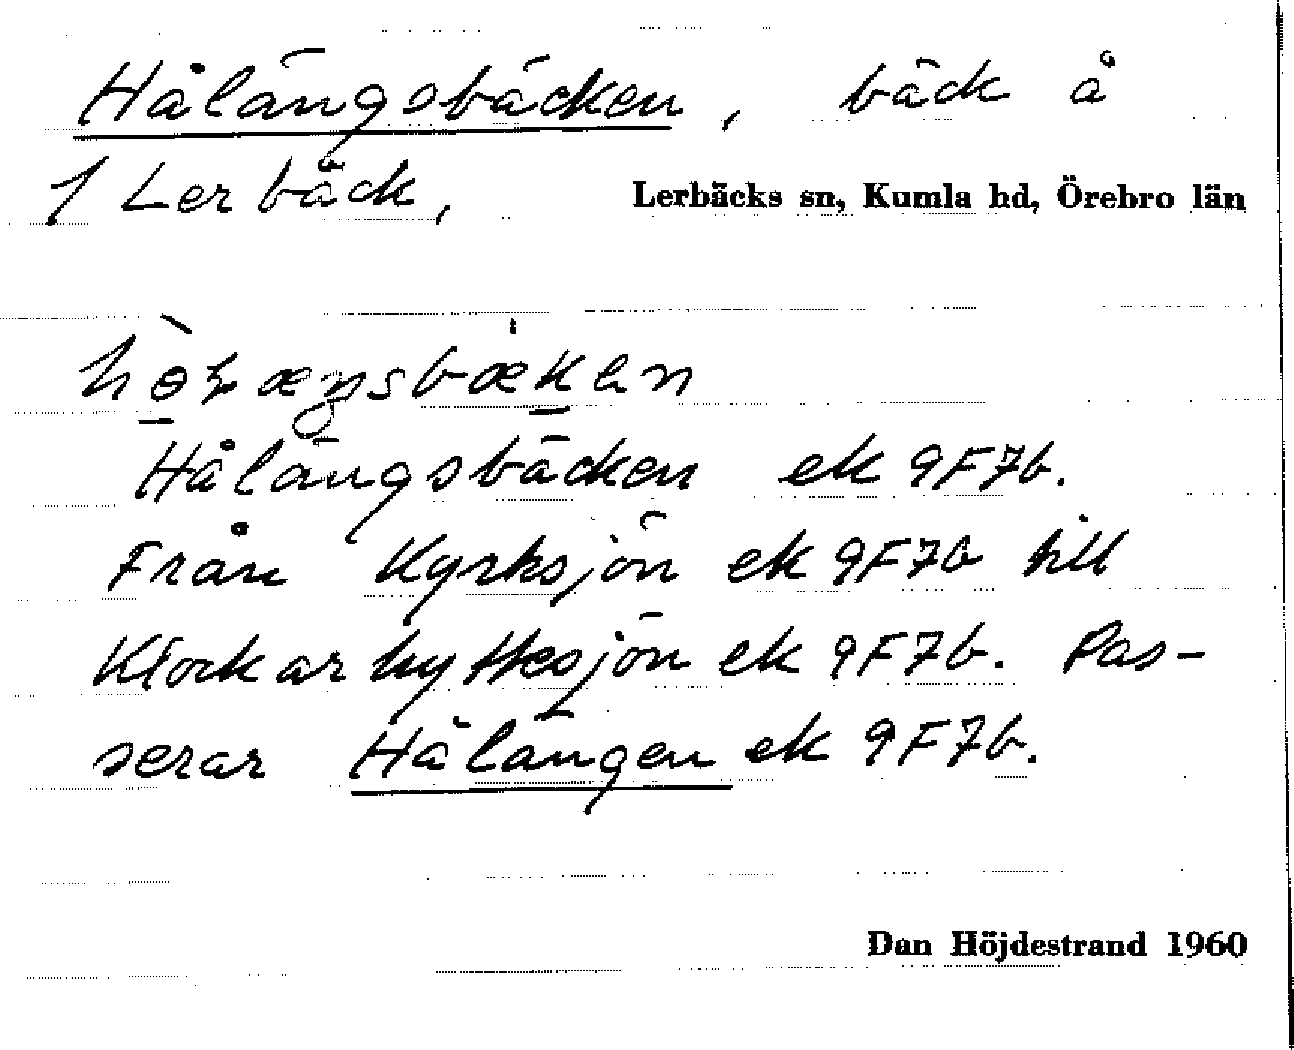 Hålängsbäcken, bäck å
1 Lerbäck, Lerbäcks sn, Kumla hd, Örebro län
Hålängsbäcken ek 9F7b.
Från Kyrksjön ek 9F7b till
Klockarhyttesjön ek 9F7b. Pas-
serar Hålängen ek 9F7b.
Dan Höjdestrand 1960